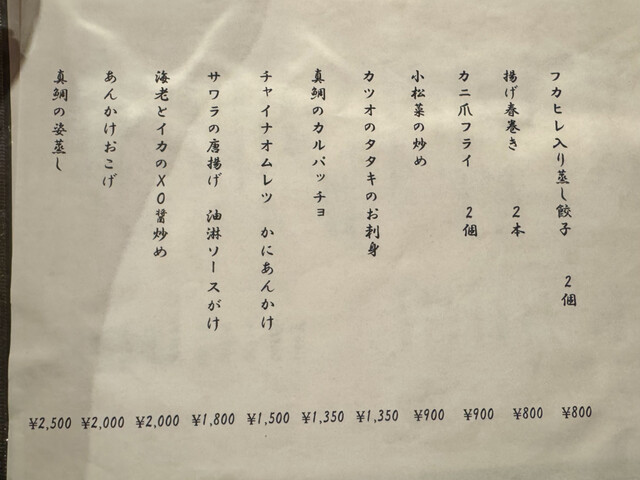 フカヒレ入り蒸し餃子　2個　¥800
揚げ春巻き　2本　¥800
カニ爪フライ　2個　¥900
小松菜の炒め　¥900
カツオのタタキのお刺身　¥1,350
真鯛のカルパッチョ　¥1,350
チャイナオムレツ　かにあんかけ　¥1,500
サワラの唐揚げ　油淋ソースがけ　¥1,800
海老とイカのXO醤炒め　¥2,000
あんかけおこげ　¥2,000
真鯛の姿蒸し　¥2,500